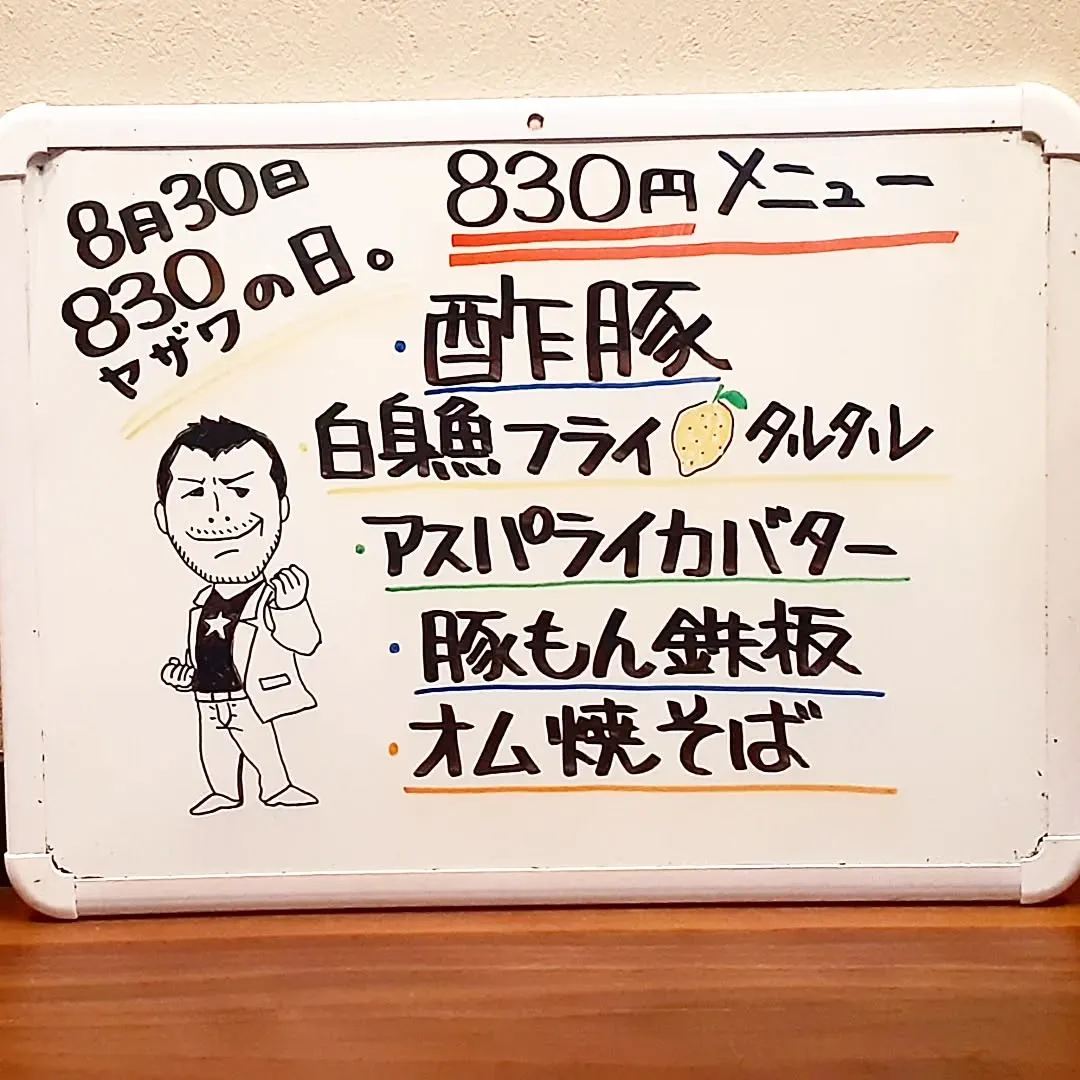 8月30日
830の日。
ヤザワ
830円メニュー
・酢豚
・白身魚フライ タルタル
・アスパライカバター
・豚もん鉄板
・オム焼そば